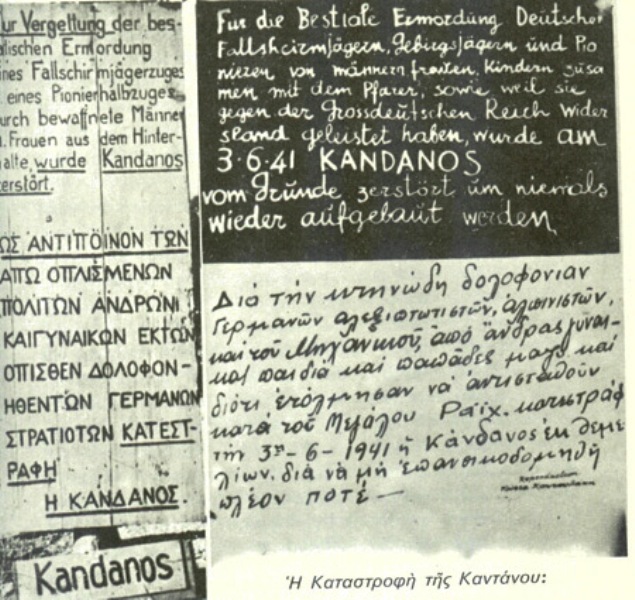 ur Vergeltung der bes-
alischen Ermordung
ines Fallschirmjägerzuges
eines Pionierhalbzuges
urch bewaffnete Männer
. Frauen aus dem Hinter-
alte, wurde Kandanos
erstört.
ΩΣ ΑΝΤΙΠΟΙΝΟΝ ΤΩΝ
ΑΠΩ ΟΠΛΙΣΜΕΝΩΝ
ΠΟΛΙΤΩΝ ΑΝΔΡΩΝ
ΚΑΙ ΓΥΝΑΙΚΩΝ ΕΚ ΤΩΝ
ΟΠΙΣΘΕΝ ΔΟΛΟΦΟΝ-
ΗΘΕΝΤΩΝ ΓΕΡΜΑΝΩΝ
ΣΤΡΑΤΙΟΤΩΝ ΚΑΤΕΣΤ-
ΡΑΦΗ
Η ΚΑΝΔΑΝΟΣ.
Kandanos
Fur die Bestiale Ermordung Deutscher
Fallsheirmjägern, Gebirgsjägern und Pio
nieren von männern frauten, Kindern zusa
men mit dem Pfarer, sowie weil sie
gegen der Grossdeutschen Reich wider
stand geleistet haben, wurde am
3·6·41 KANDANOS
vom Grunde zerstört um niemals
wieder aufgebaut werden
Διά τήν κτηνώδη δολοφονίαν
Γερμανῶν ἀλεξιπτωτιστῶν, ἀλπινιστῶν,
καί τοῦ Μηχανικοῦ, ἀπό ἄνδρας, γυναῖ-
κας καί παιδιά καί παπάδες μαζύ καί
διότι ἐτόλμησαν νά ἀντισταθοῦν
κατά τοῦ Μεγάλου Ράιχ. κατεστράφ
τήν 3ην-6-1941 ἡ Κάνδανος ἐκ θεμε
λίων, διά νά μή ἐπανοικοδομηθῇ
πλέον ποτέ —
Ἡ Καταστροφή τῆς Καντάνου: